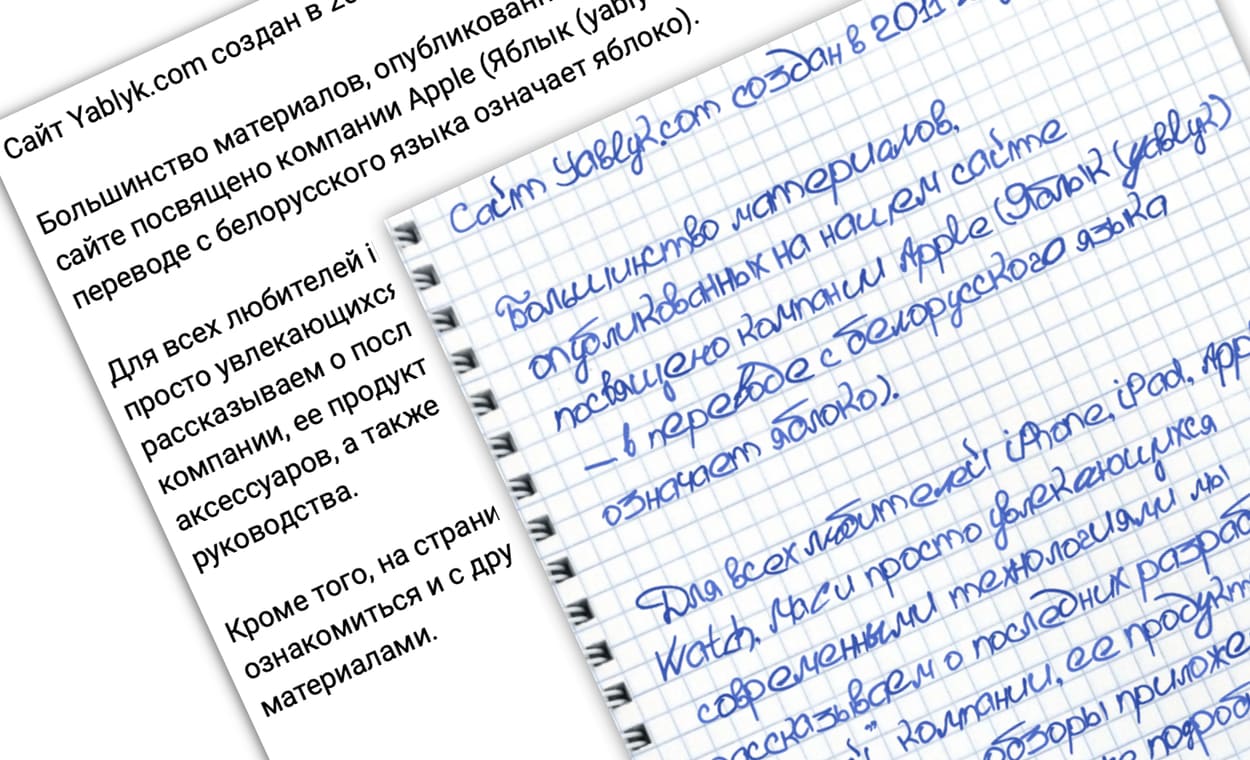 Сайт Yablyk.com создан в
Большинство материалов,
сайте посвящено компании Apple (Яблык
переводе с белорусского языка означает яблоко).
Для всех любителей
просто увлекающихся
рассказываем о
компании, ее
аксессуаров, а также
руководства.
Кроме того, на
ознакомиться и с
материалами.
Сайт Yablyk.com создан в 2011
Большинство материалов,
опубликованных на нашем сайте
посвящено компании Apple (Яблык (yablyk)
— в переводе с белорусского языка
означает яблоко).
Для всех любителей iPhone, iPad,
Watch, Mac и просто увлекающихся
современными технологиями мы
о последних
компании, ее
обзоры